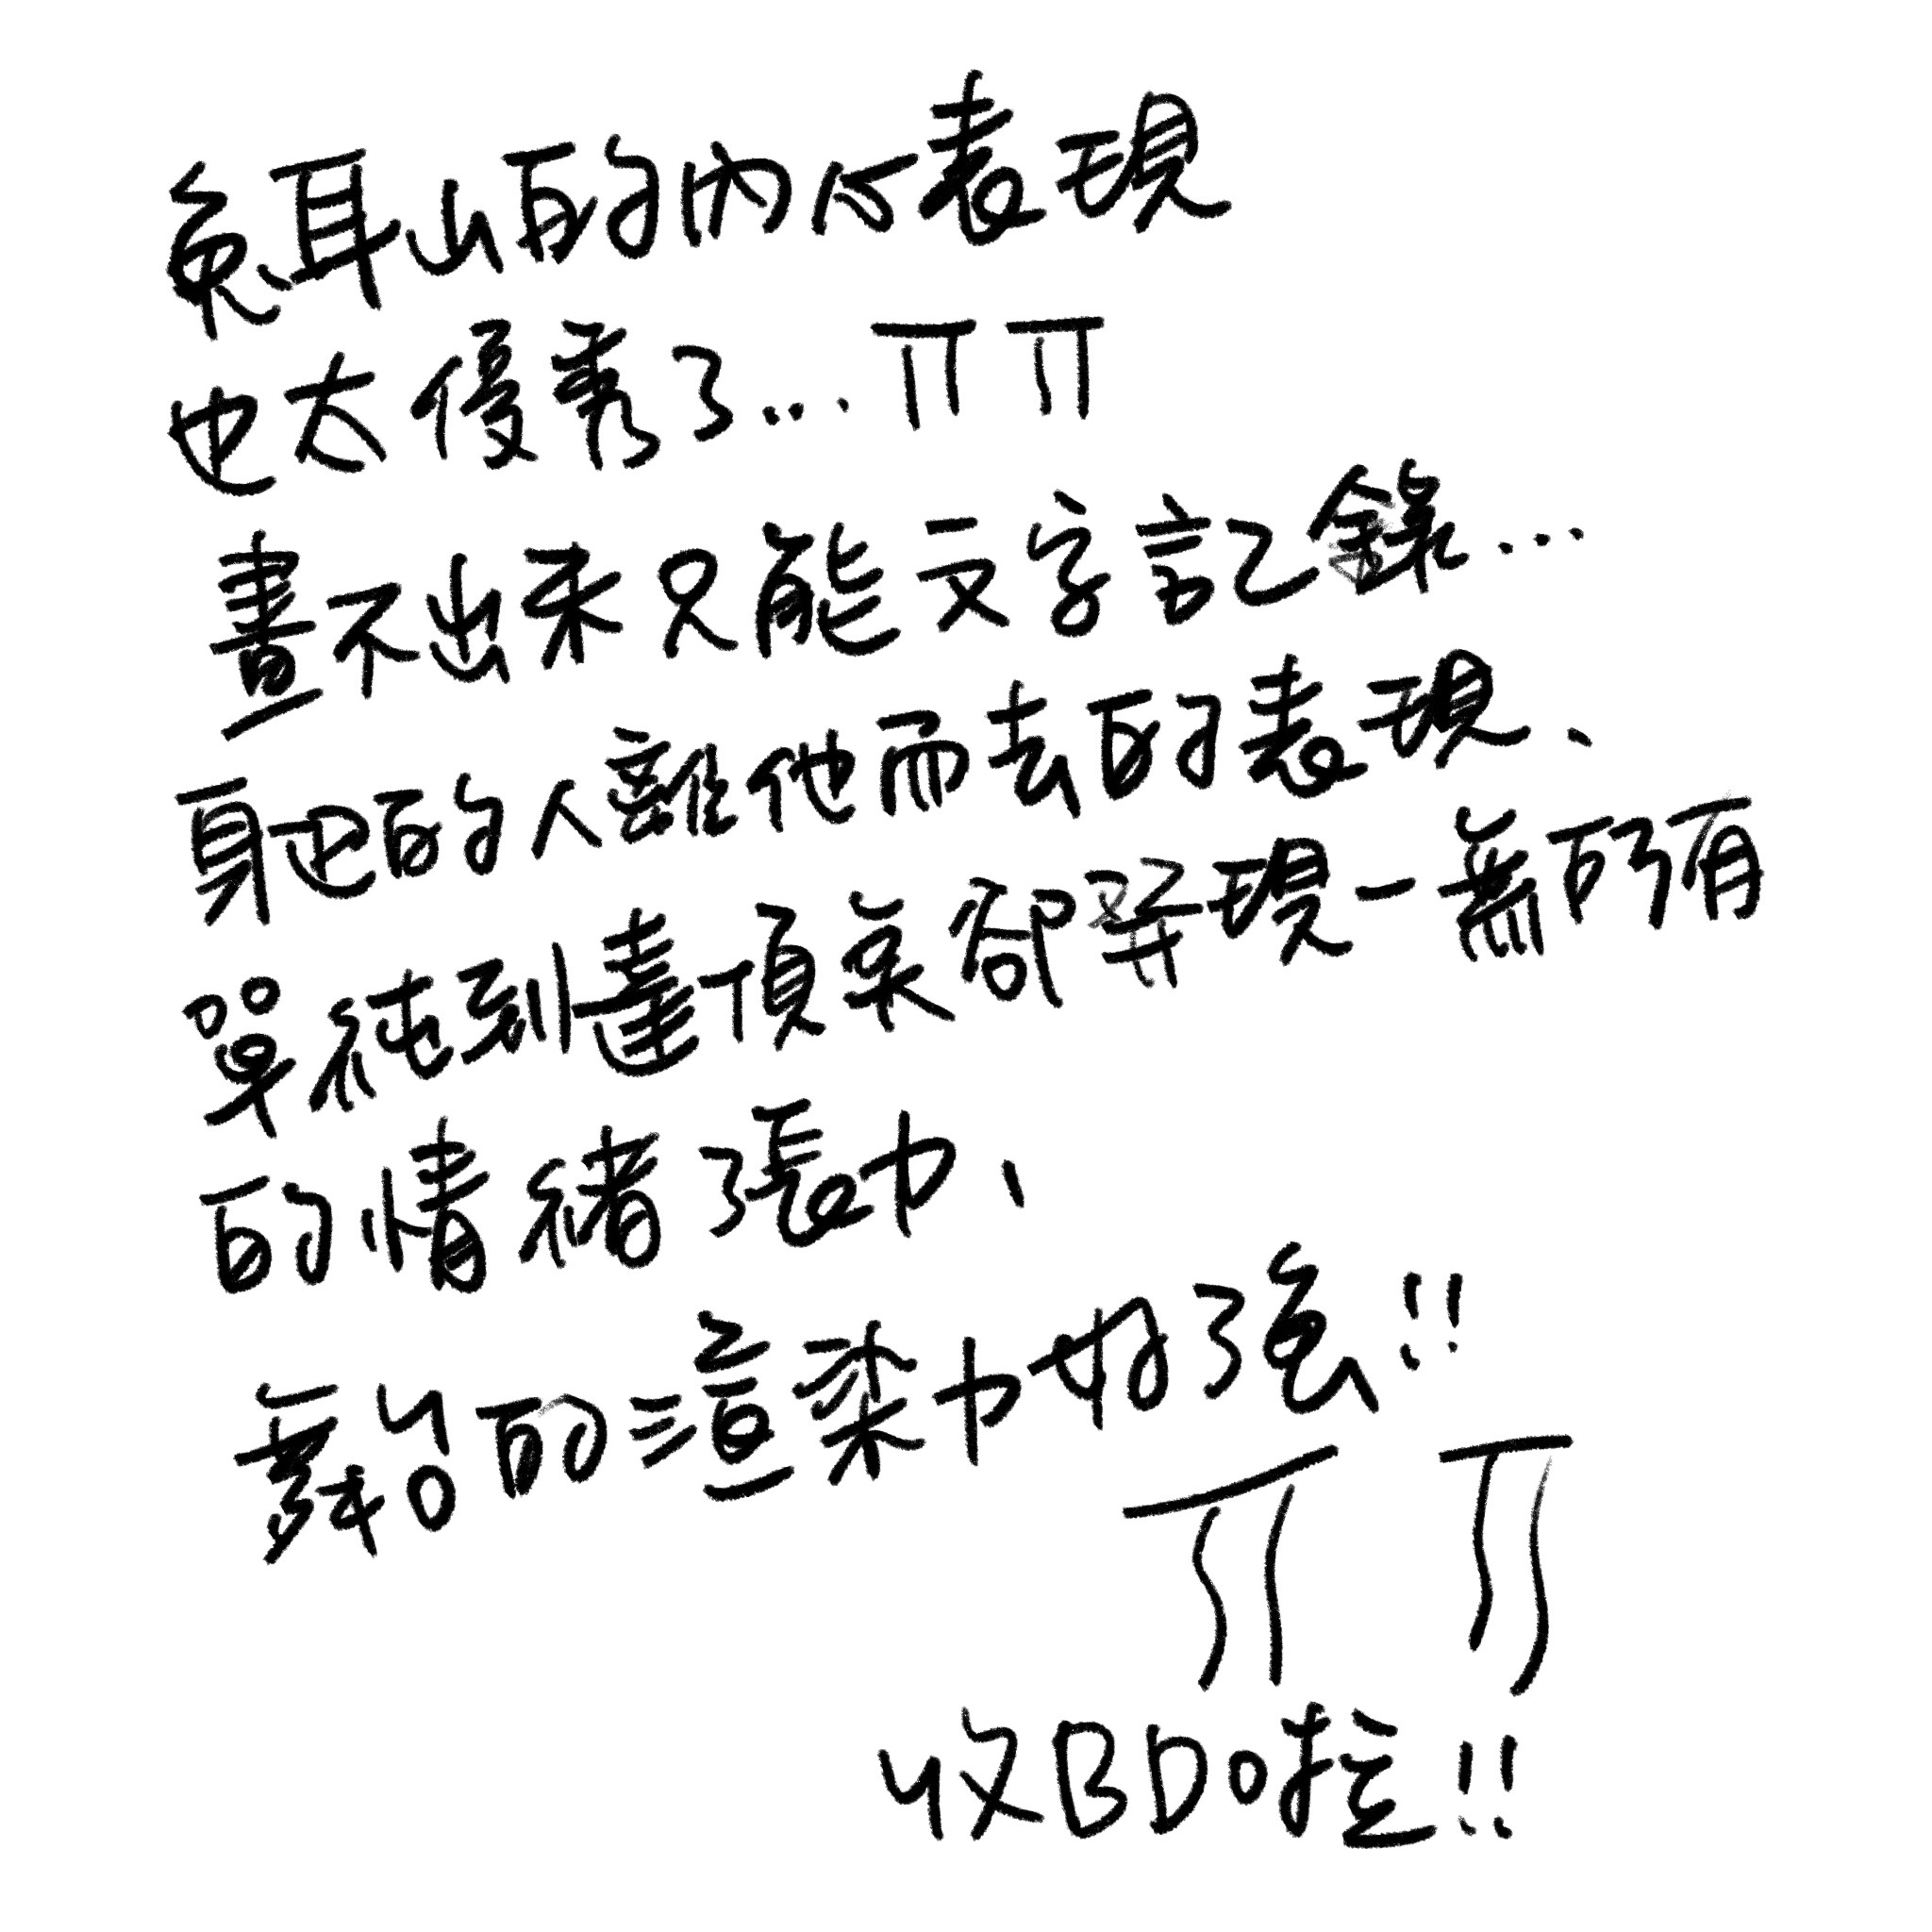 兔耳山的內心表現
也太優秀了... ㅠㅠ
畫不出來只能文字記錄...
身邊的人離他而去的表現、
單純到達頂點卻發現一無所有
的情緒張力、
舞台的渲染力好強!!
ㅠㅠ
收BD啦!!